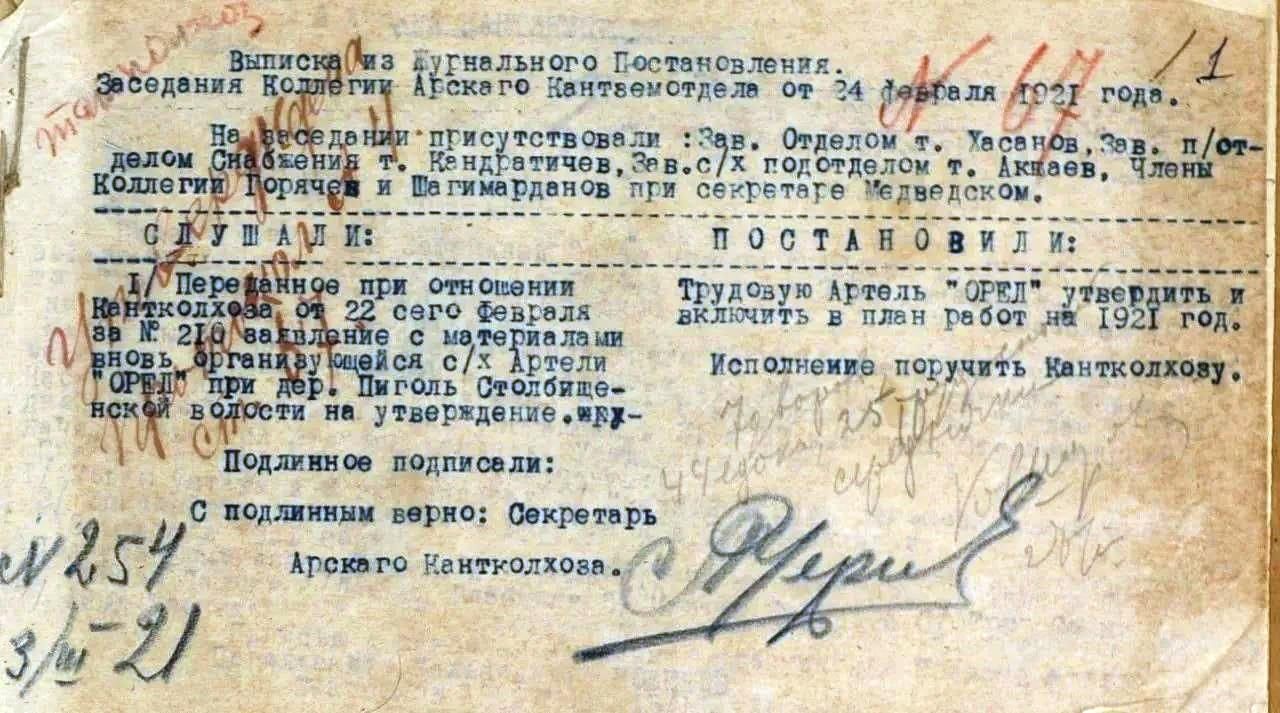 № 67
11
Выписка из Журнального Постановления.
Заседания Коллегии Арскаго Кантземотдела от 24 февраля 1921 года.
На заседании присутствовали :Зав. Отделом т. Хасанов, Зав. п/от-
делом Снабжения т. Кандратичев, Зав.с/х подотделом т. Акшаев, Члены
Коллегии Горячев и Шагимарданов при секретаре Медведском.
СЛУШАЛИ:
I/ Переданное при отношении
Кантколхоза от 22 сего февраля
за № 210 заявление с материалами
вновь организующейся с/х Артели
"ОРЕЛ" при дер. Пиголь Столбище-
нской волости на утверждение.
ПОСТАНОВИЛИ:
Трудовую Артель "ОРЕЛ" утвердить и
включить в план работ на 1921 год.
Исполнение поручить Кантколхозу.
7 дворов
44 едока, 25
Подлинное подписали:
С подлинным верно: Секретарь
Арскаго Кантколхоза.
№ 254
3/III-21